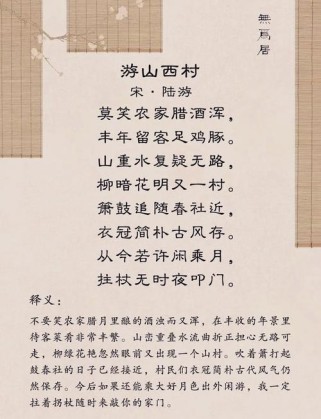 無為居
游山西村
宋·陆游
莫笑农家腊酒浑，
丰年留客足鸡豚。
山重水复疑无路，
柳暗花明又一村。
箫鼓追随春社近，
衣冠简朴古风存。
从今若许闲乘月，
拄杖无时夜叩门。
释义：
不要笑农家腊月里酿的酒浊而又浑，在丰收的年景里
待客菜肴非常丰繁。山峦重叠水流曲折正担心无路可
走，柳绿花艳忽然眼前又出现一个山村。吹着箫打起
鼓春社的日子已经接近，村民们衣冠简朴古代风气仍
然保存。今后如果还能乘大好月色出外闲游，我一定
拄着拐杖随时来敲你的家门。